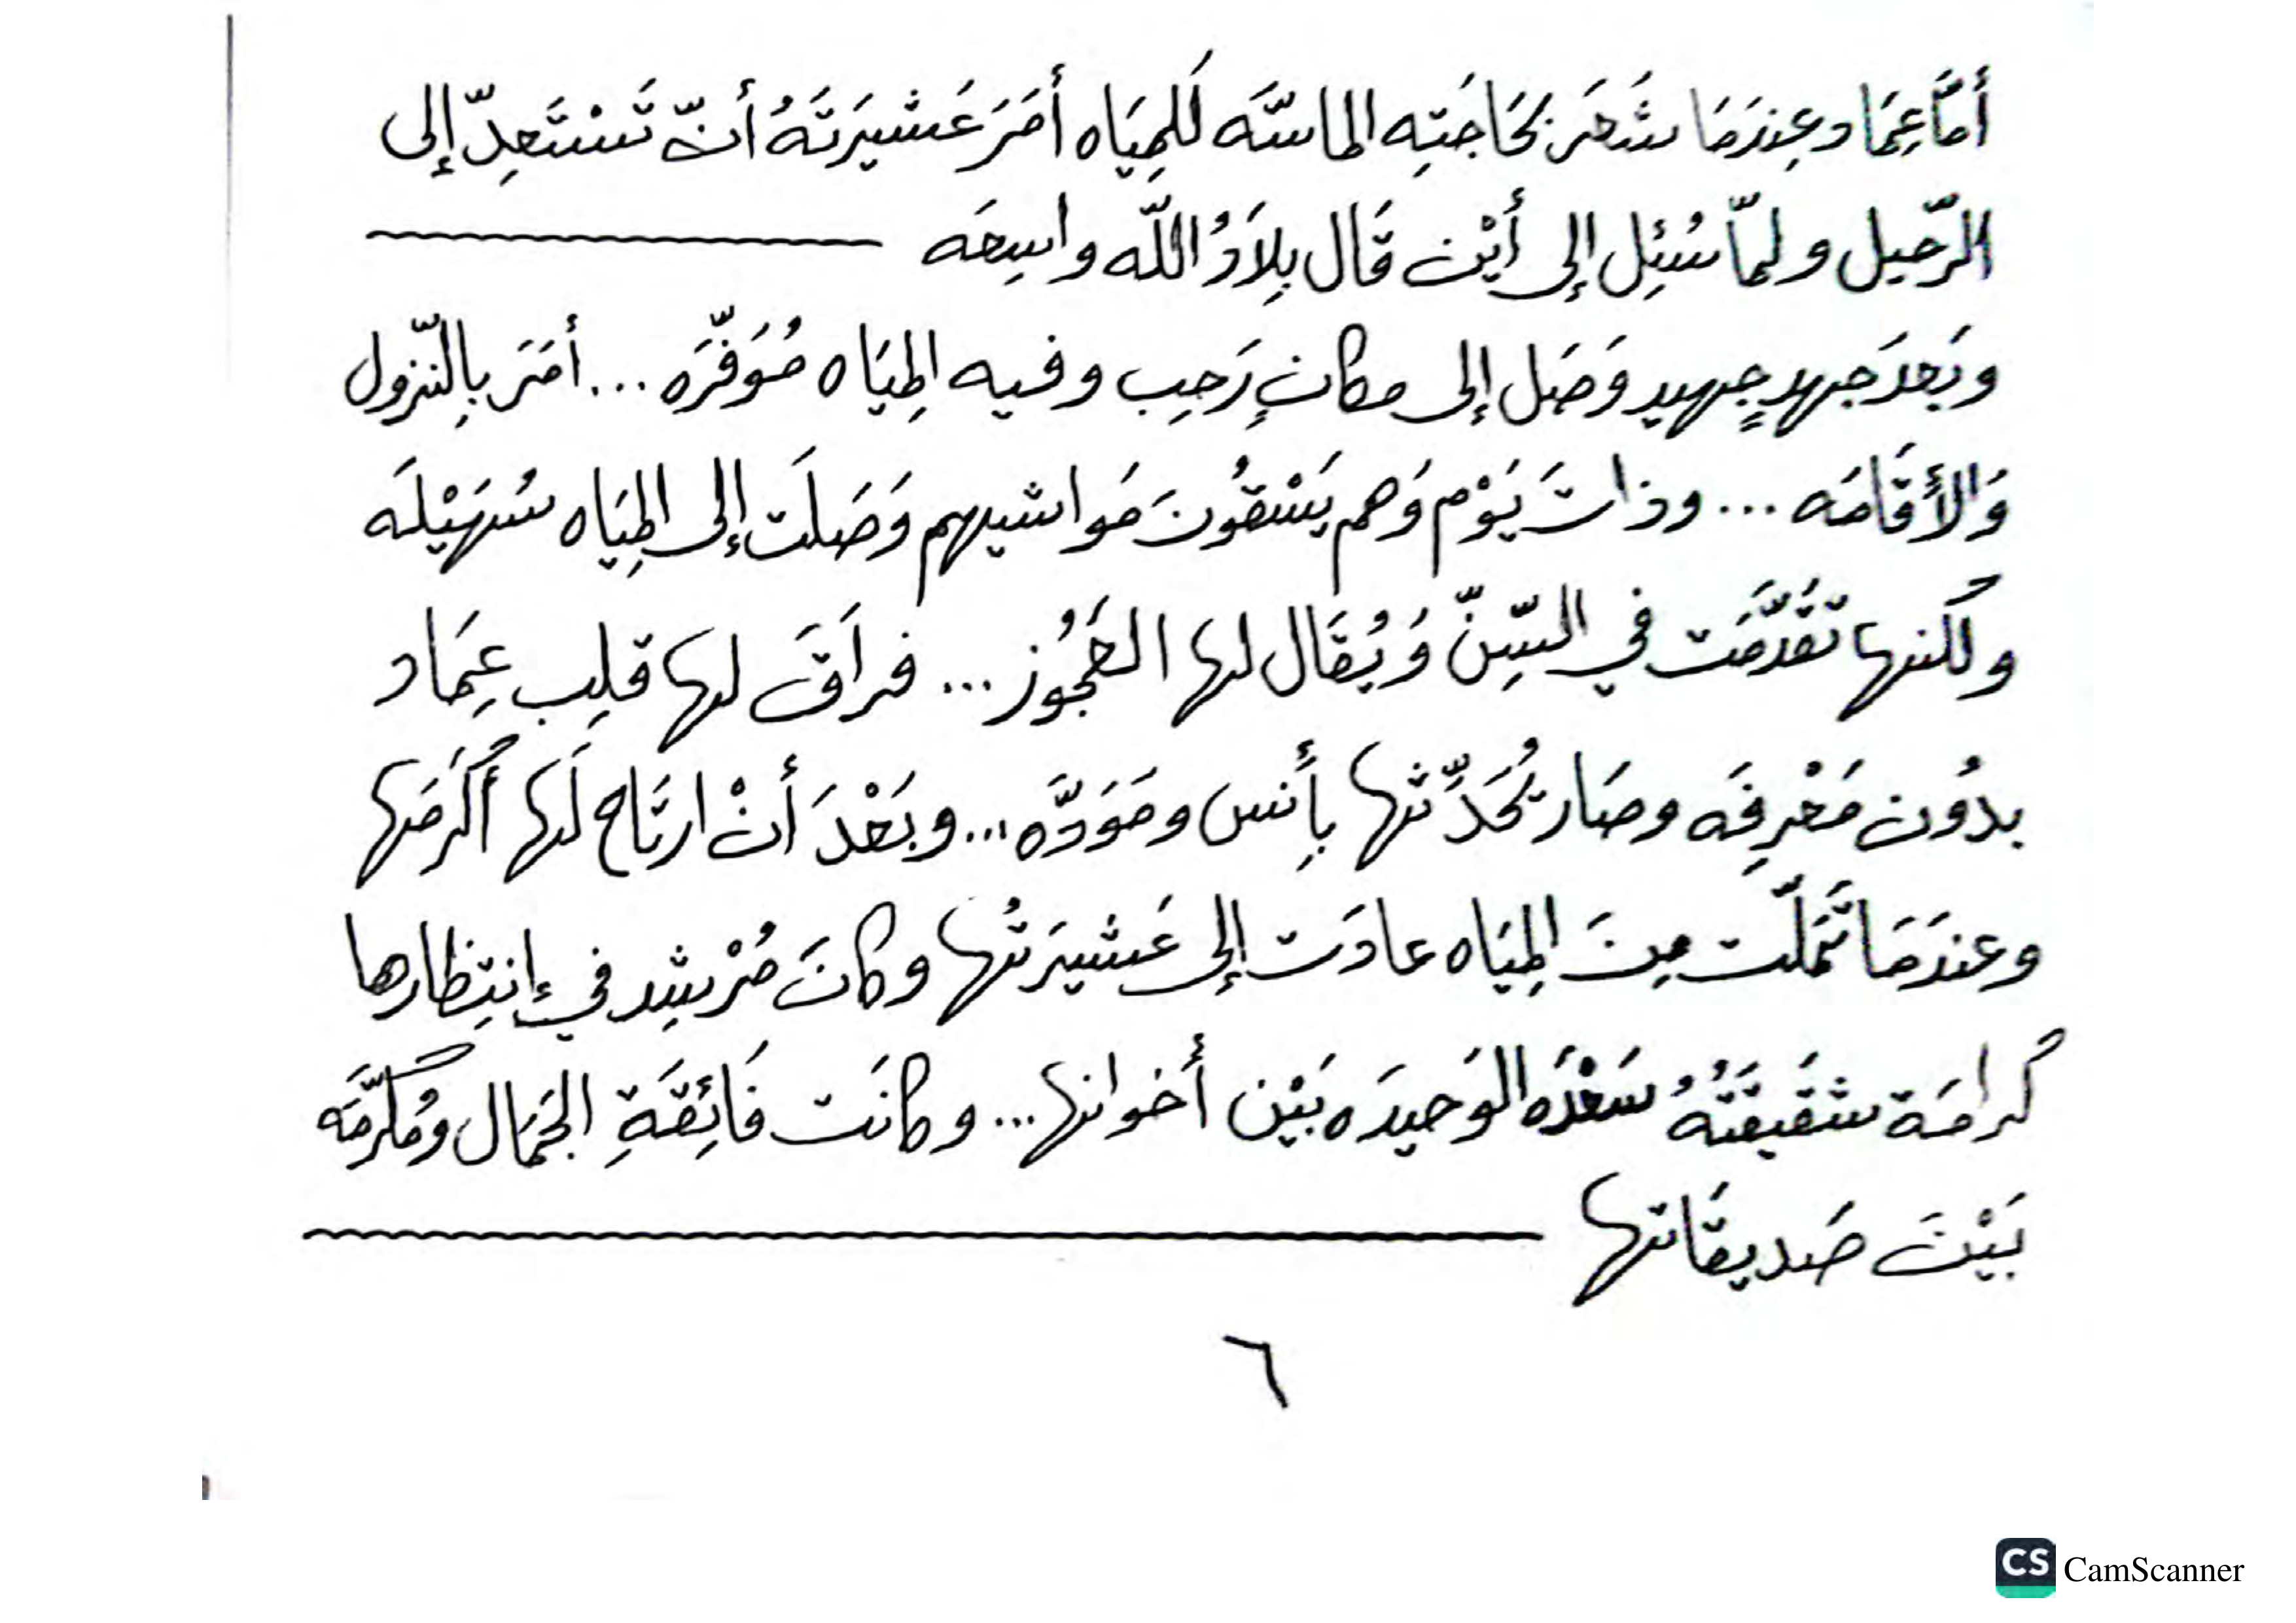 أمَّا عِمَاد وعِندَمَا شَعَرَ بحَاجَتِه الماسَّه لَلمِيَاه أمَرَ عَشيرَتَهُ أنّ تَسْتَعِدّ إلى
الرّحيل ولمّا سُئِل إلى أيْن قَال بِلاَدُ اللّه واسِعَه
وبَعدَ جَهدٍ جِهيد وَصَل إلى مكانٍ رَحِب وفيه المِيَاه مُوَفّرَه ... أمَرَ بِالنّزول
وَالأقَامَه ... وذاتَ يَوْم وَهم يَسْقُونَ مَواشيهم وَصَلَت إلى المِيَاه سُهَيْلَه
ولكنها تَقَدَّمَت في السِّنّ وَيُقَال لها العَجُوز ... فراَقَ لها قلِب عِمَاد
بدُون مَعْرِفَه وصَار يُحَدِّثها بِأَنس ومَوَدَّه ... وبَعْدَ أنْ ارتَاح لَها أكرَمَها
وعندَمَا تَمَلّت مِنَ المِيَاه عادَت إلى عَشيرَتُها وكانَ مُرْشِد في إنتِظارها
كُرامَة شقَيقَتَهُ سَعْدَه الوَحيدَه بَيْن أخوانها ... وكانَت فَائِقَةِ الجَمَال ومُكرَّمَه
بَيْنَ صَديقَاتها
٦
CS CamScanner